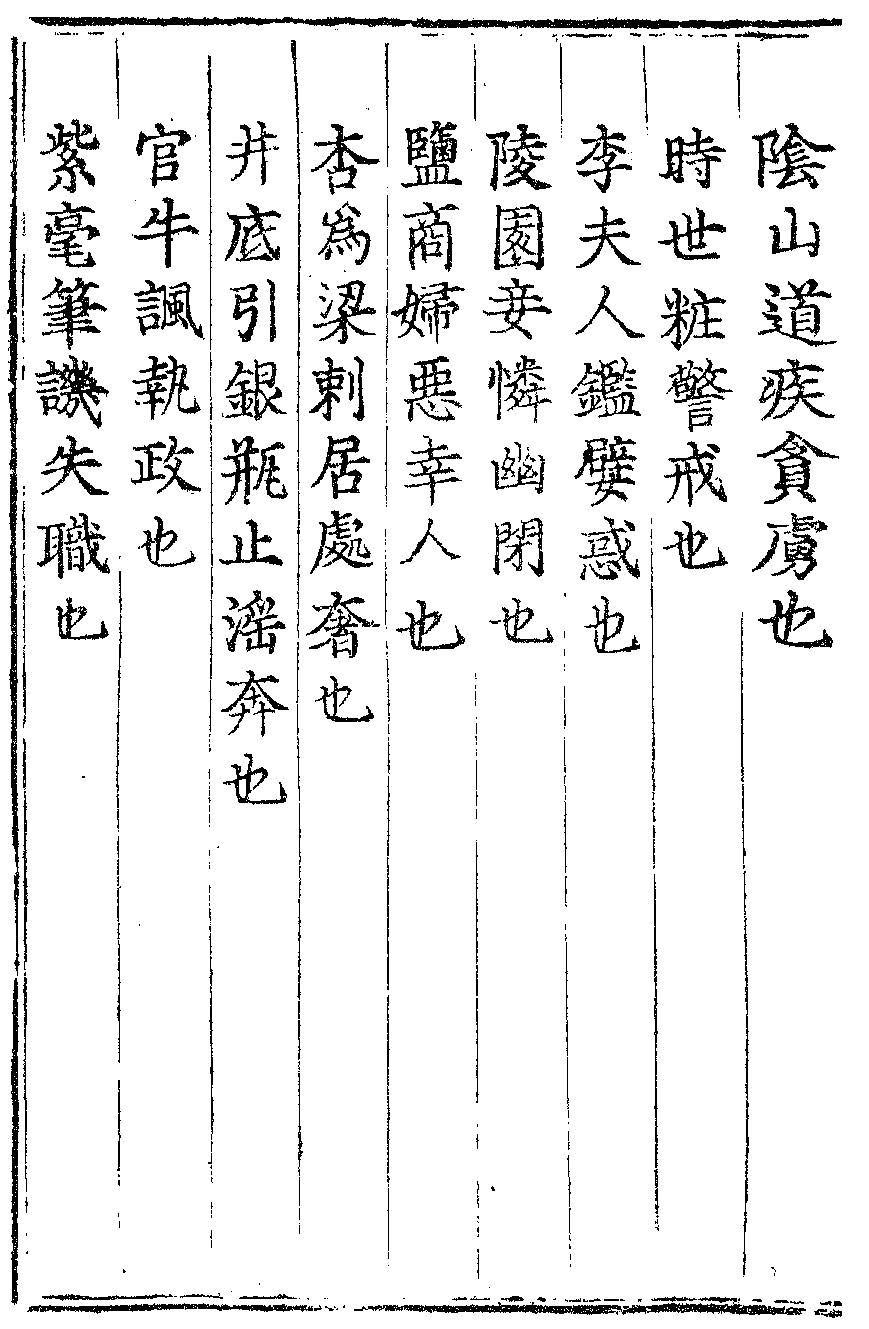 隂山道疾貪虜也
時世粧警戒也
李夫人鑑嬖惑也
陵園妾憐幽閉也
鹽商婦惡幸人也
杏爲梁刺居處奢也
井底引銀瓶止滛奔也
官牛諷執政也
紫毫筆譏失職也